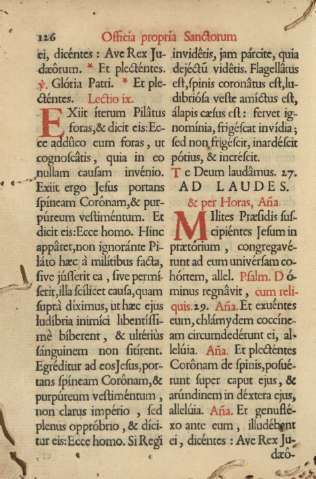 126 Officia propria Sanctorum
ei, dicéntes : Ave Rex Ju-
dæórum. * Et plecténtes.
℣. Glória Patri. * Et ple-
cténtes. Lectio ix.
EXiit íterum Pilátus
foras,& dicit eis: Ec-
ce addúco eum foras, ut
cognoscátis, quia in eo
nullam causam invénio.
Exiit ergo Jesus portans
spíneam Corónam,& pur-
púreum vestiméntum. Et
dicit eis: Ecce homo. Hinc
appáret,non ignoránte Pi-
láto hæc à milítibus facta,
sive jússerit ea , sive permí-
serit,illa scílicet causa,quam
suprà díximus, ut hæc ejus
ludíbria inimíci libentíssi-
mè bíberent , & ultériùs
sánguinem non sitírent.
Egréditur ad eos Jesus, por-
tans spíneam Corónam,&
purpúreum vestiméntum ,
non clarus império , sed
plenus oppróbrio , & díci-
tur eis: Ecce homo. Si Regi
invidétis, jam párcite, quia
dejéctũ vidétis. Flagellátus
est,spinis coronátus est,lu-
dibriósa veste amíctus est,
álapis cæsus est: fervet ig-
nomínia, frigéscat invídia;
sed non frigéscit, inardéscit
pótiùs, & increscit.
Te Deum laudámus. 27.
AD LAUDES.
& per Horas, Aña
MIlites Præsidis sus-
cipiéntes Jesum in
prætórium , congregavé-
runt ad eum univérsam co-
hórtem, allel. Psalm. Dó-
minus regnávit, cum reli-
quis.29. Aña. Et exuéntes
eum,chlámydem coccíne-
am circumdedérunt ei, al-
lelúia. Aña. Et plecténtes
Corónam de spinis,posué-
runt super caput ejus, &
arúndinem in déxtera ejus,
allelúia. Aña. Et genuflé-
xo ante eum , illudébant
ei , dicéntes : Ave Rex Ju-
dæó-